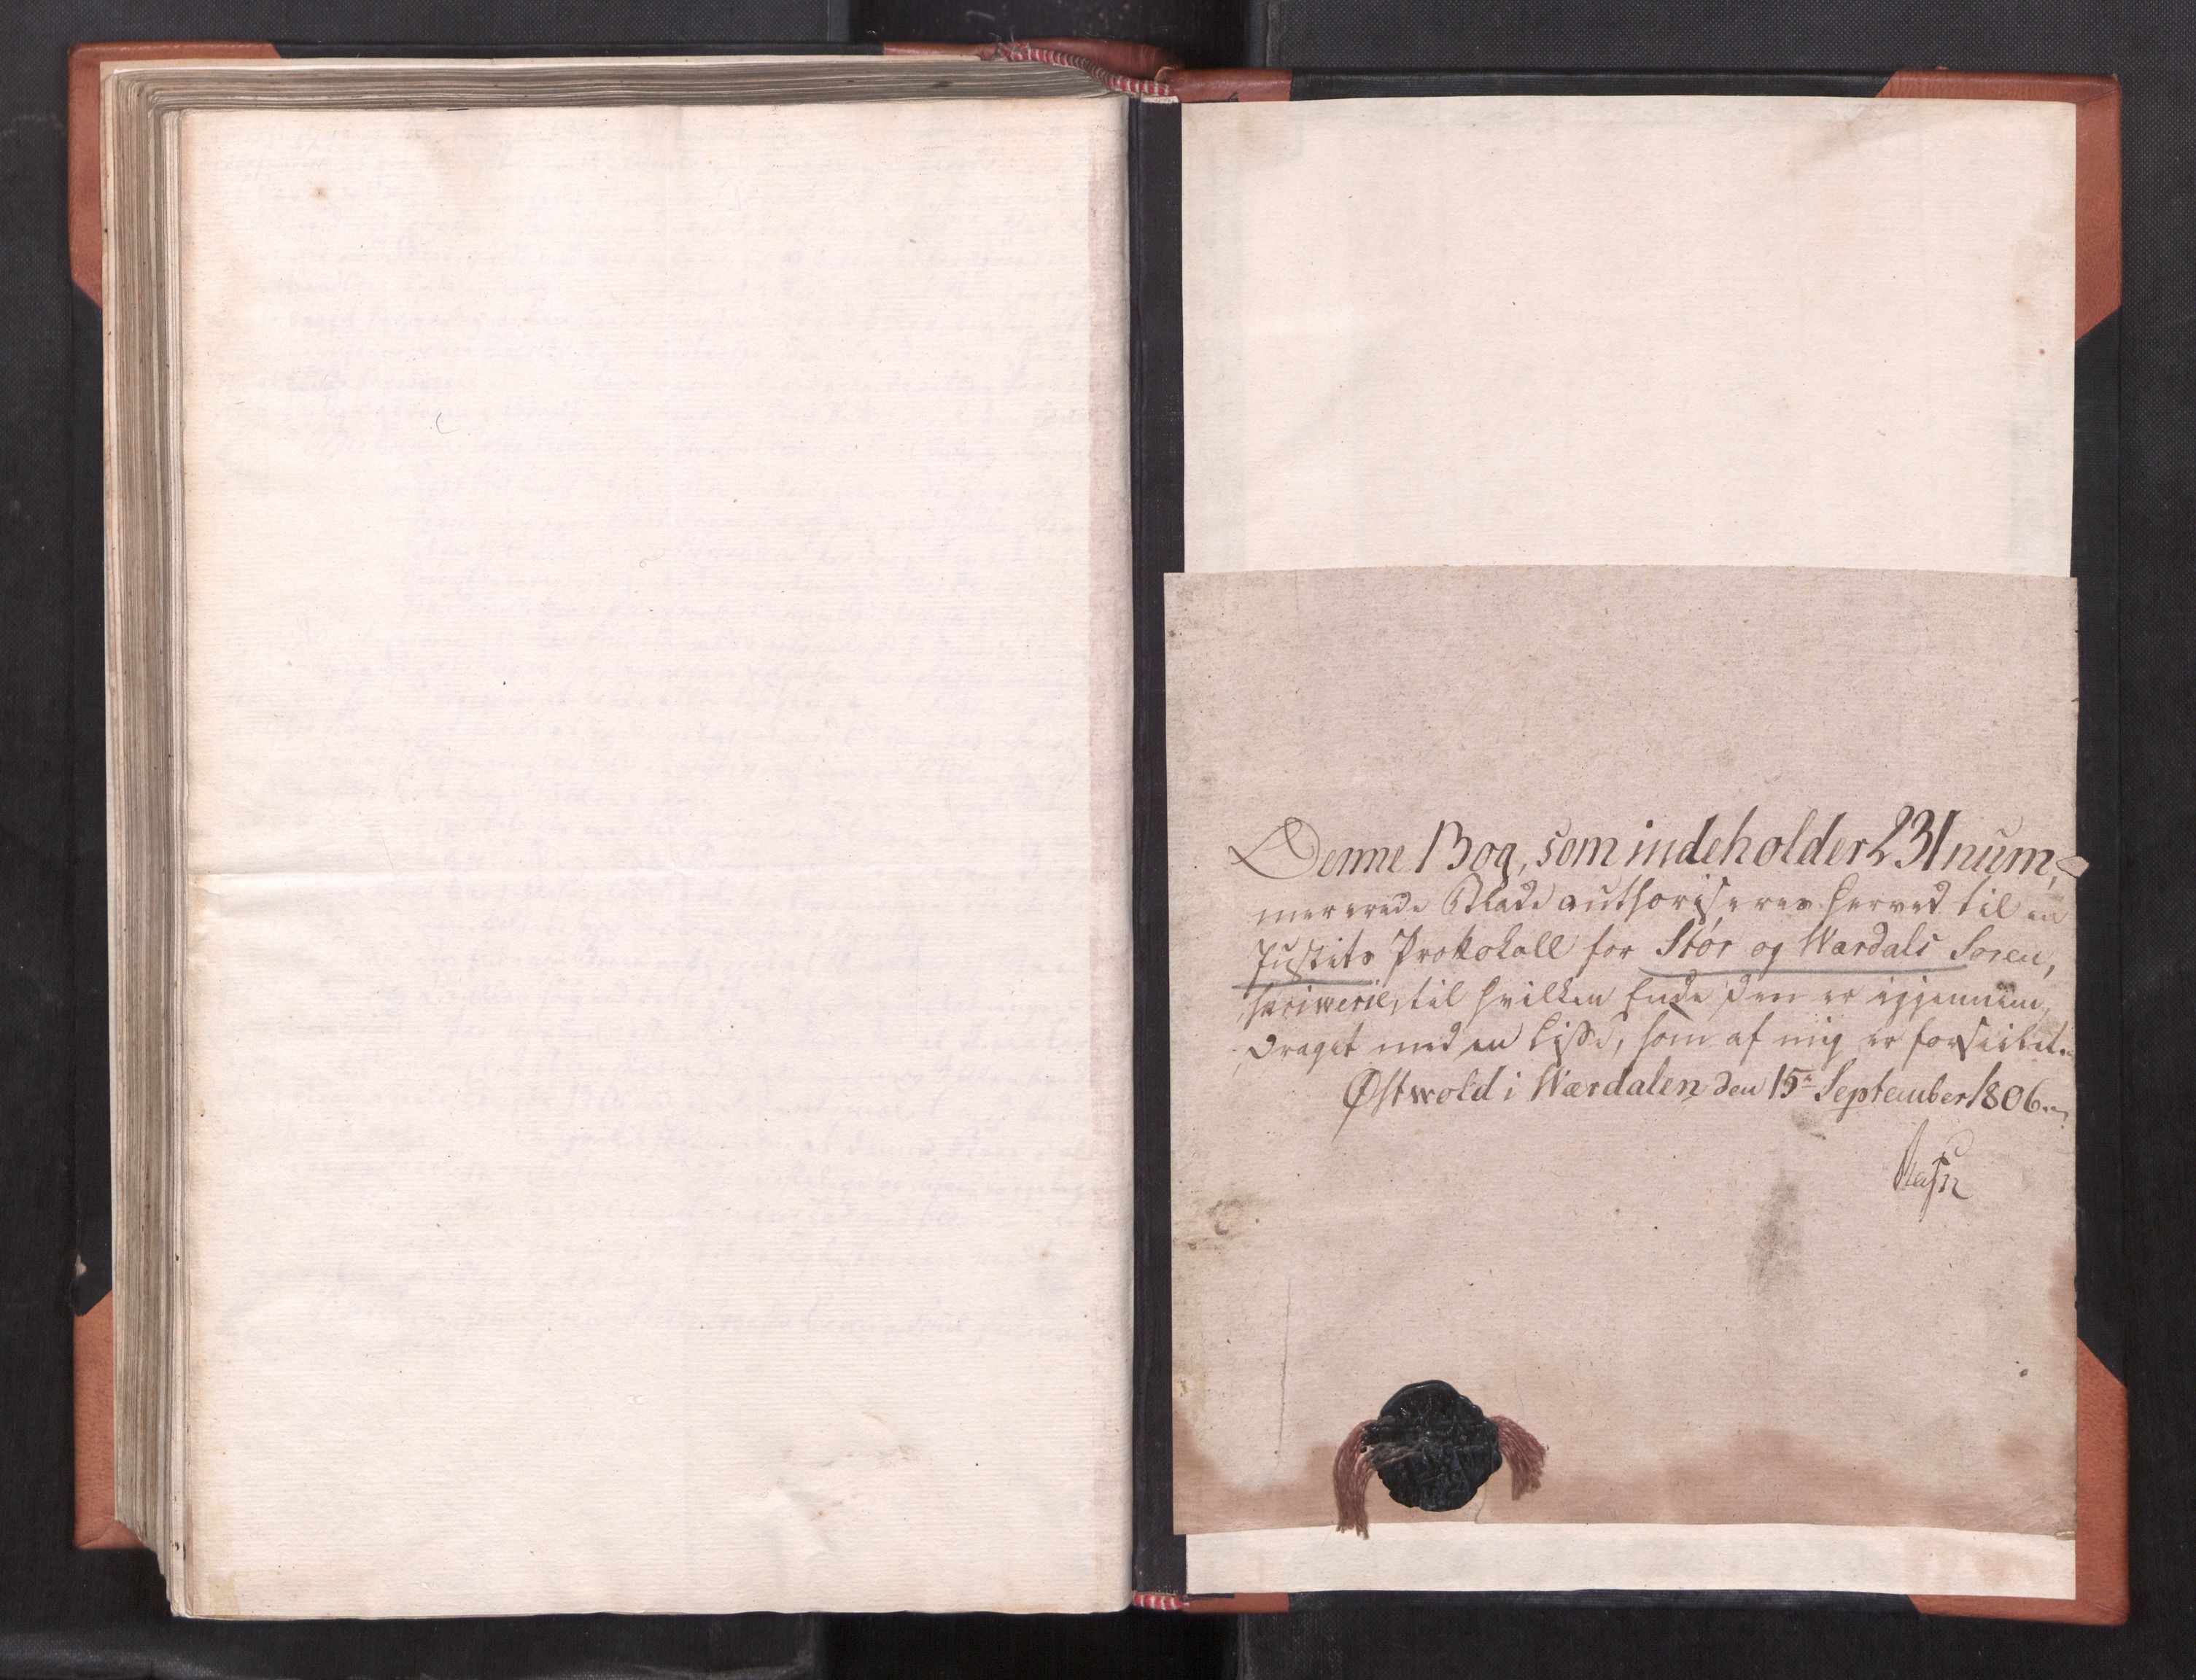 Denne Bog, som indeholder 231 num,
mererede Blade authoriseres herved til en
Justits Protokoll for Stør og Wærdals Soren,
skriverie, til hvilken Ende den er igjennem,
draget med en Lisse, som af mig er forseilet.
Østwold i Wærdalen den 15de September 1806.